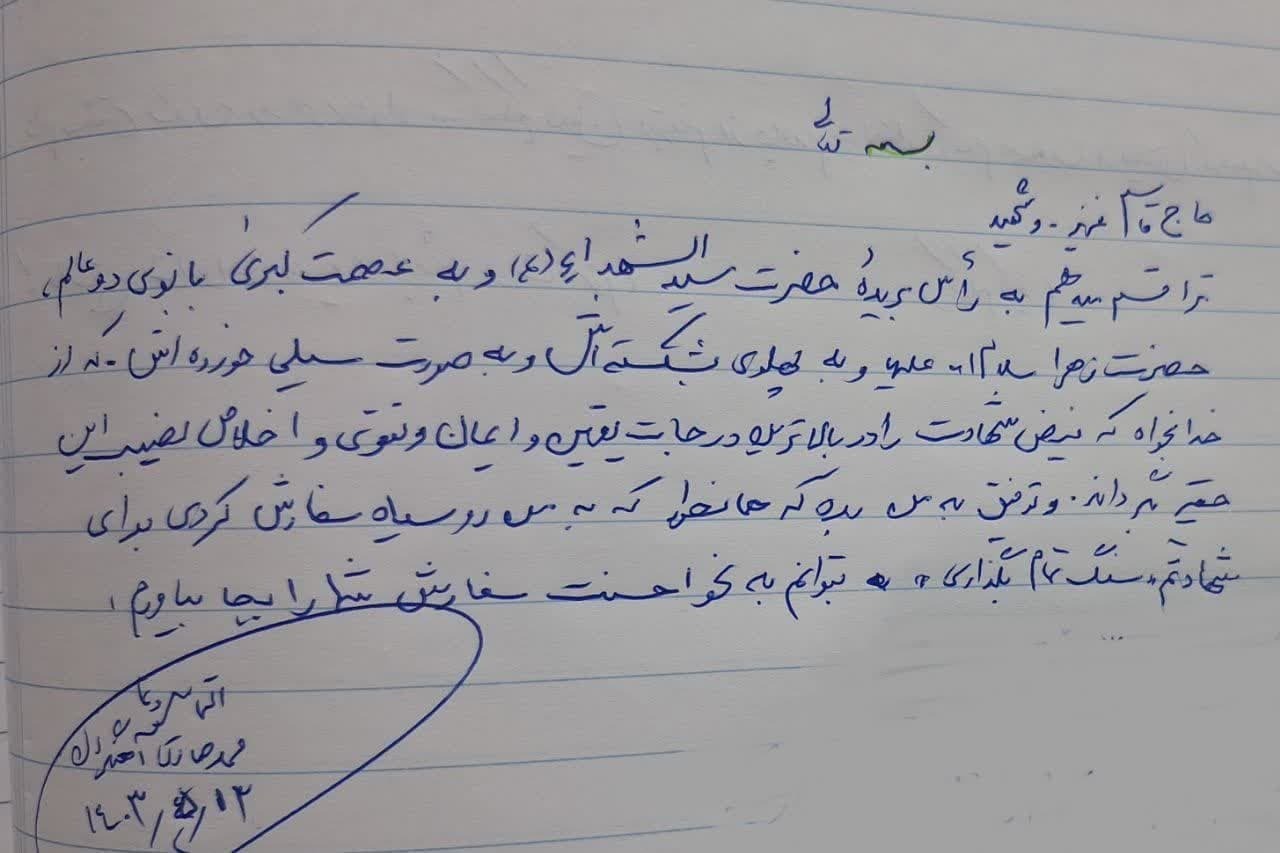 بسمه تعالی
حاج قاسم عزیز - و شهید
ترا قسم میدهم به رأس بریدهٔ حضرت سید الشهداء (ع) و به عصمت کبریٰ بانوی دو عالم،
حضرت زهرا سلام ا... علیها و به پهلوی شکسته‌اش و به صورت سیلی خورده‌اش - که از
خدا بخواه که فیض شهادت را در بالاترین درجات یقین و ایمان و تقوی و اخلاص نصیب این
حقیر گرداند. و توفیق به من بده که همانطور که به من رو سیاه سفارش کردی برای
شهادتم "سنگ تمام بگذاری" بتوانم به نحو احسنت سفارش شما را بجا بیاورم.
التماس دعا
محمدرضا
۱۴۰۳/ /۱۳